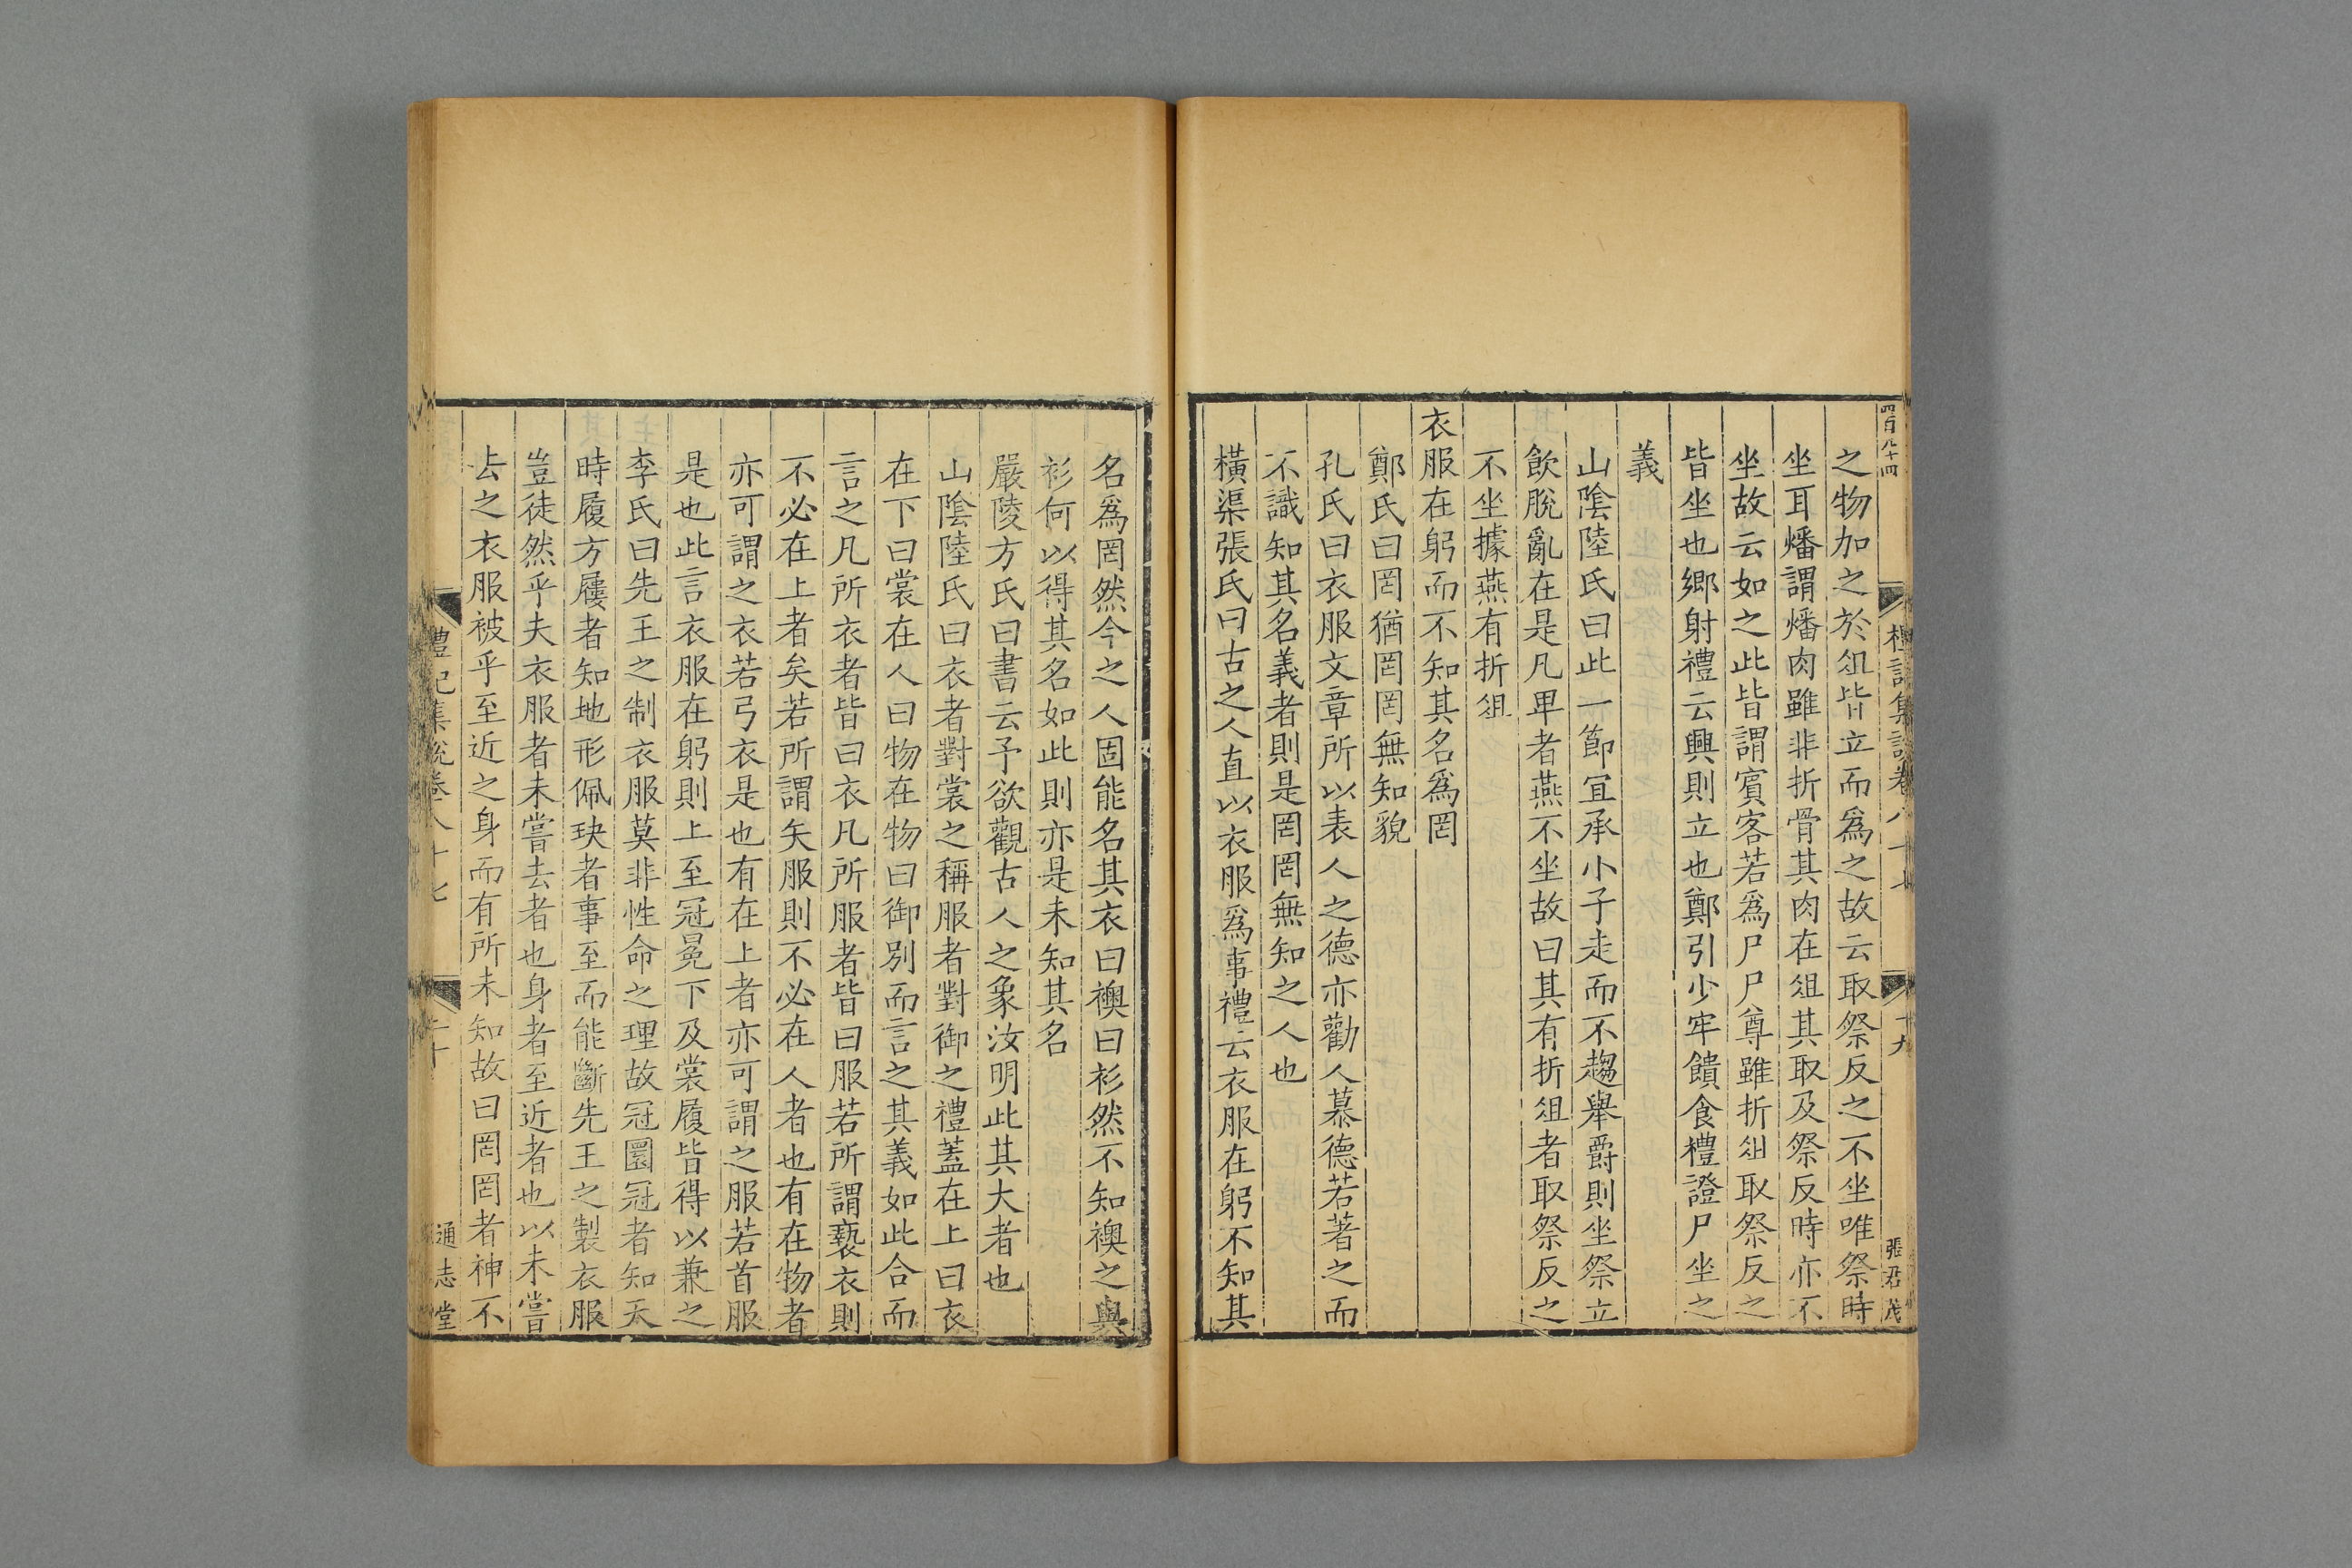 四百八十四
禮記集說卷八十七
十九
張君茂
之物加之於俎皆立而爲之故云取祭反之不坐唯祭時
坐耳燔謂燔肉雖非折骨其肉在俎其取及祭反時亦不
坐故云如之此皆謂賓客若爲尸尸尊雖折俎取祭反之
皆坐也鄉射禮云興則立也鄭引少牢饋食禮證尸坐之
義
山隂陸氏曰此一節宜承小子走而不趨舉爵則坐祭立
飲脫亂在是凡卑者燕不坐故曰其有折俎者取祭反之
不坐據燕有折俎
衣服在躬而不知其名爲罔
鄭氏曰罔猶罔罔無知貌
孔氏曰衣服文章所以表人之德亦勸人慕德若著之而
不識知其名義者則是罔罔無知之人也
橫渠張氏曰古之人直以衣服爲事禮云衣服在躬不知其
名爲罔然今之人固能名其衣曰襖曰衫然不知襖之與
衫何以得其名如此則亦是未知其名
嚴陵方氏曰書云予欲觀古人之象汝明此其大者也
山陰陸氏曰衣者對裳之稱服者對御之禮蓋在上曰衣
在下曰裳在人曰物在物曰御別而言之其義如此合而
言之凡所衣者皆曰衣凡所服者皆曰服若所謂褻衣則
不必在上者矣若所謂矢服則不必在人者也有在物者
亦可謂之衣若弓衣是也有在上者亦可謂之服若首服
是也此言衣服在躬則上至冠冕下及裳履皆得以兼之
李氏曰先王之制衣服莫非性命之理故冠圜冠者知天
時履方屨者知地形佩玦者事至而能斷先王之製衣服
豈徒然乎夫衣服者未嘗去者也身者至近者也以未嘗
去之衣服被乎至近之身而有所未知故曰罔罔者神不
禮記集說卷八十七
二十
通志堂